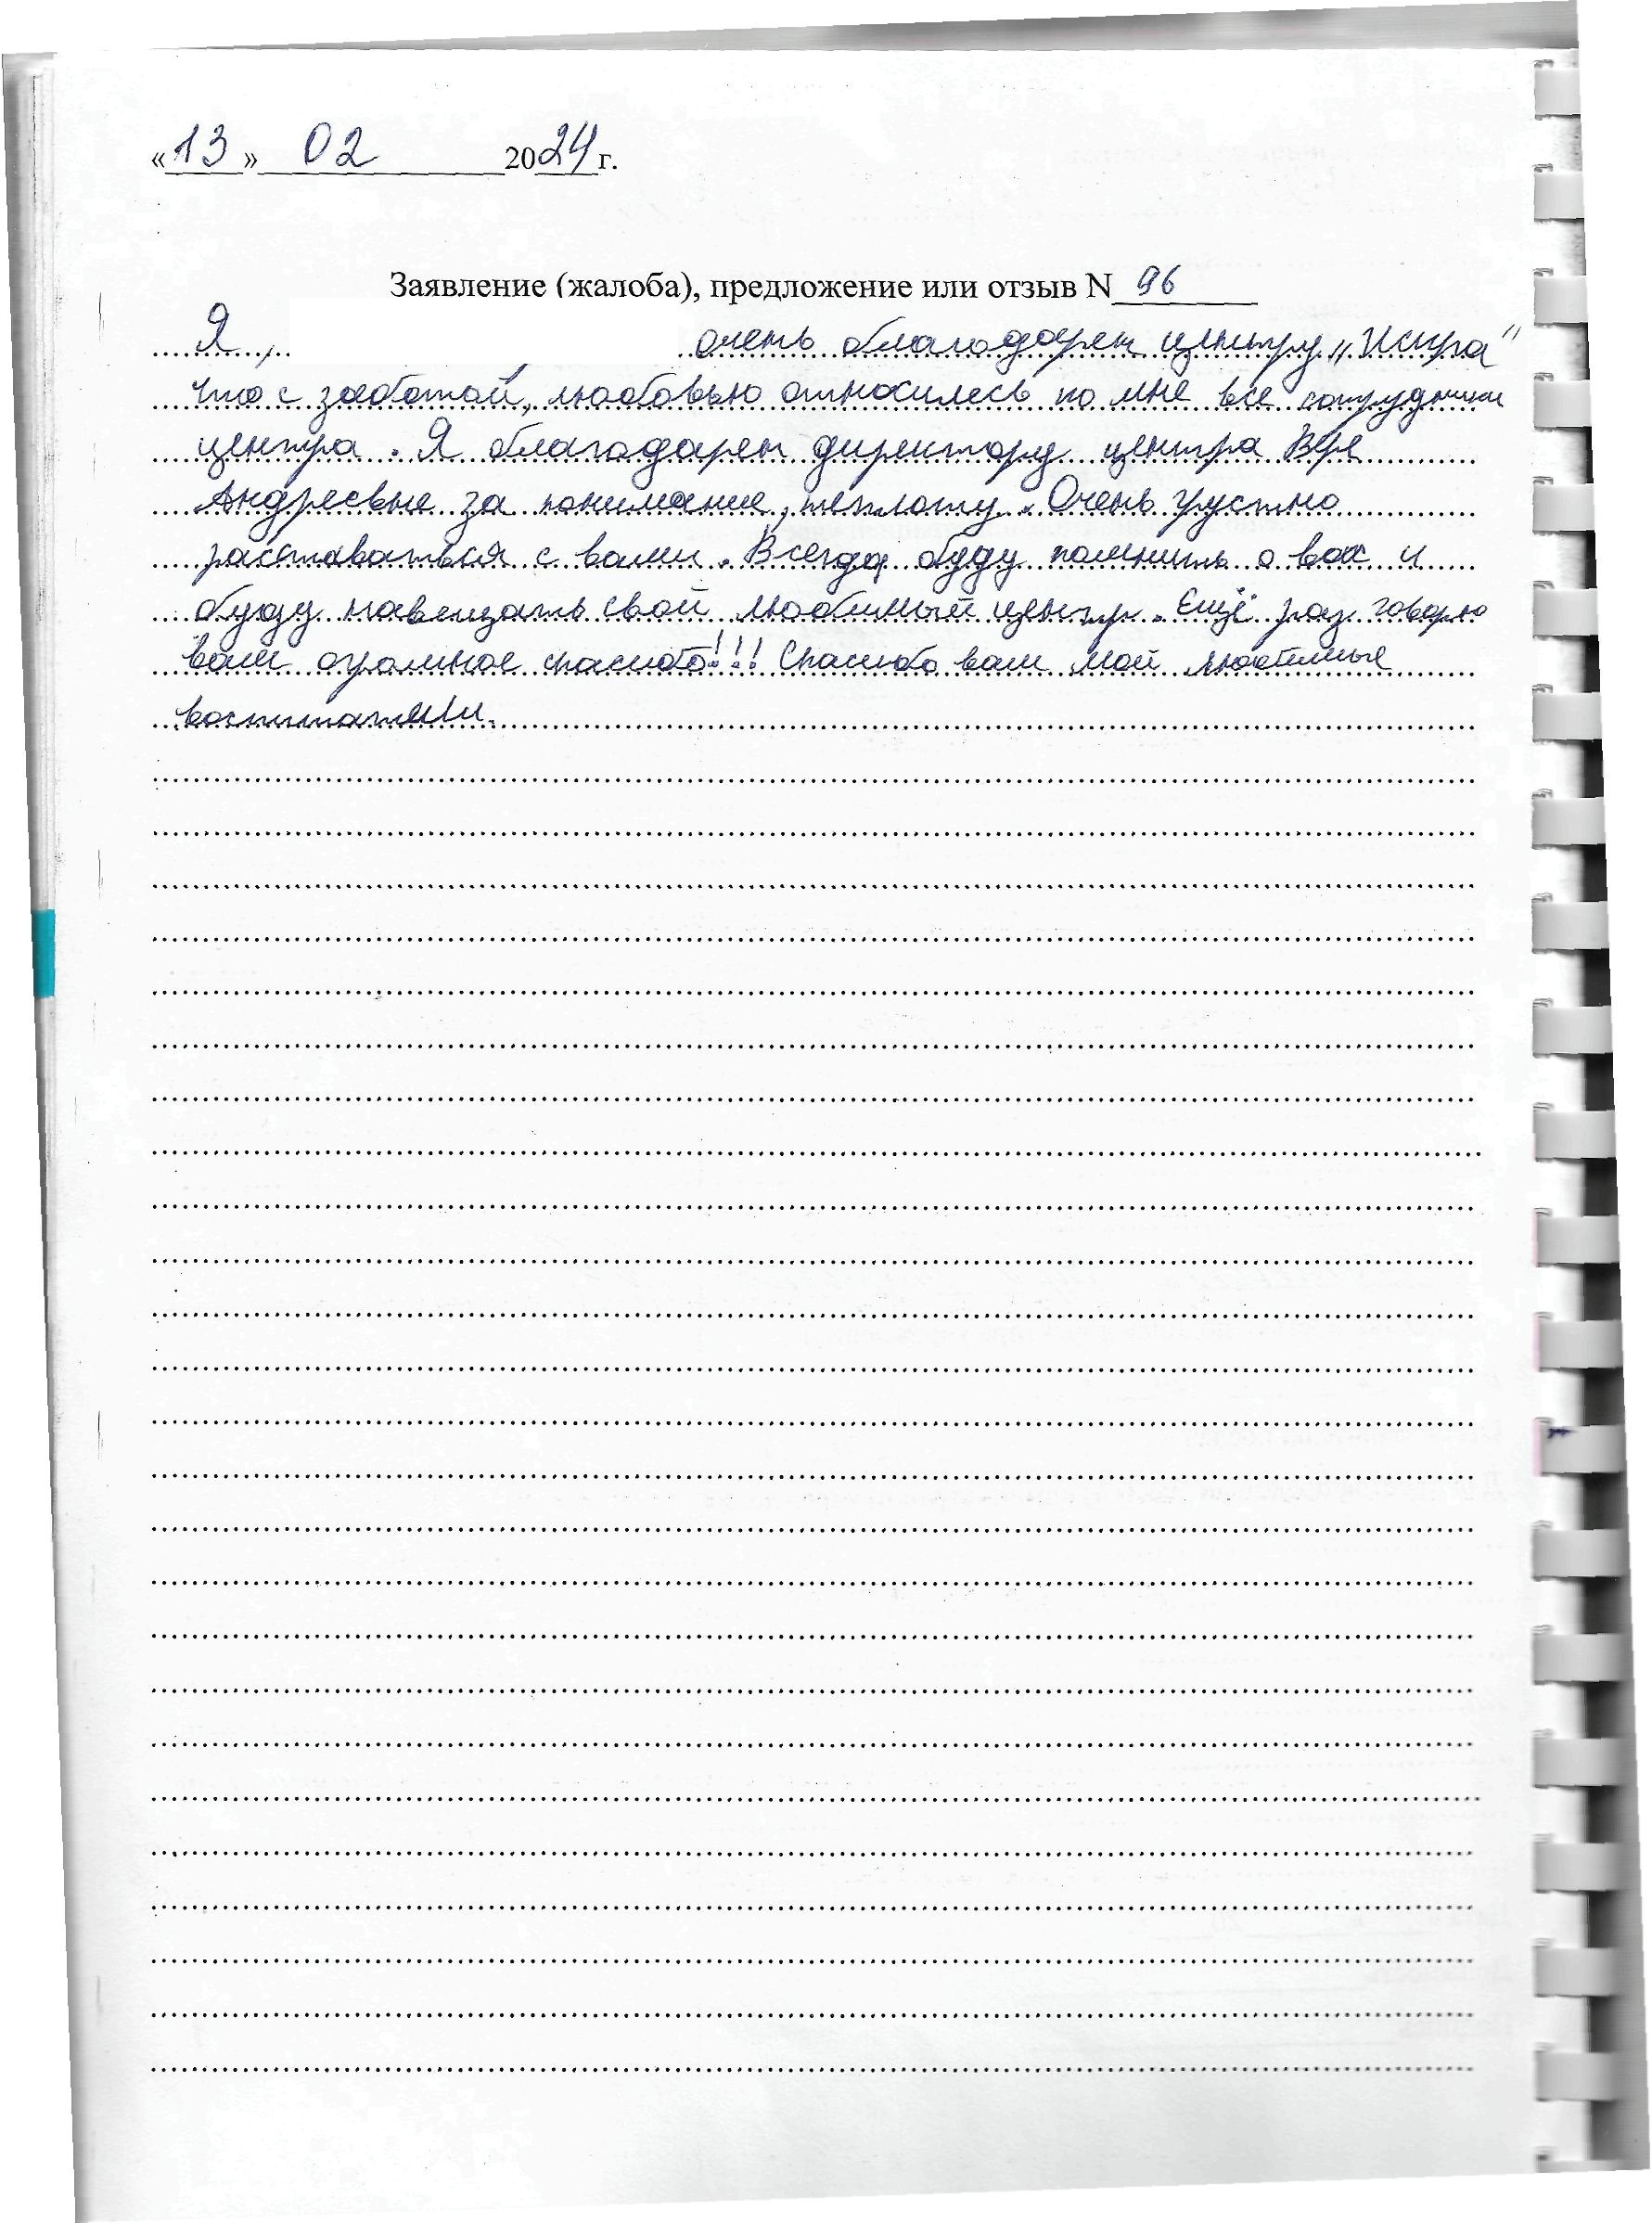 «13» 02 2024 г.
Заявление (жалоба), предложение или отзыв N 96
Я, очень благодарен центру „Искра"
что с заботой, любовью относились ко мне все сотрудники
центра. Я благодарен директору центра Вере
Андреевне за понимание, теплоту. Очень грустно
расставаться с вами. Всегда буду помнить о вас и
буду навещать свой любимый центр. Ещё раз говорю
вам огромное спасибо!!! Спасибо вам мои любимые
воспитатели.